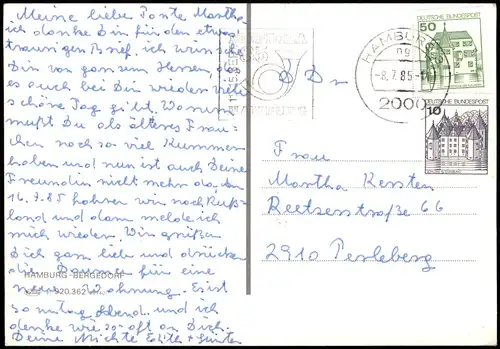 Meine liebe Tante Martha
ich danke Dir für den etwas
traurigen Brief ich wünsche
Dir von ganzem Herzen, das
es auch bei Dir wieder viele
schöne Tage gibt. Warum
mußt Du als älteres Frau-
chen noch so viel Kummer
haben und nun ist auch Deine
Freundin nicht mehr da. Am
16.7.85 fahren wir nach Ruß-
land und dann melde ich
mich wieder. Wir grüßen
Dich ganz lieb und drücken
die Daumen für eine
neue Wohnung. Es ist
Sonntag Abend und ich
denke wie so oft an Dich.
Deine Nichte Edith + Günter
HAMBURG-BERGEDORF
920.362
HAMBURG
HAMBURG
-8.7.85
2000
DEUTSCHE BUNDESPOST
50
DEUTSCHE BUNDESPOST
10
DDR
Frau
Martha Kersten
Reetzerstraße 66
2910 Perleberg